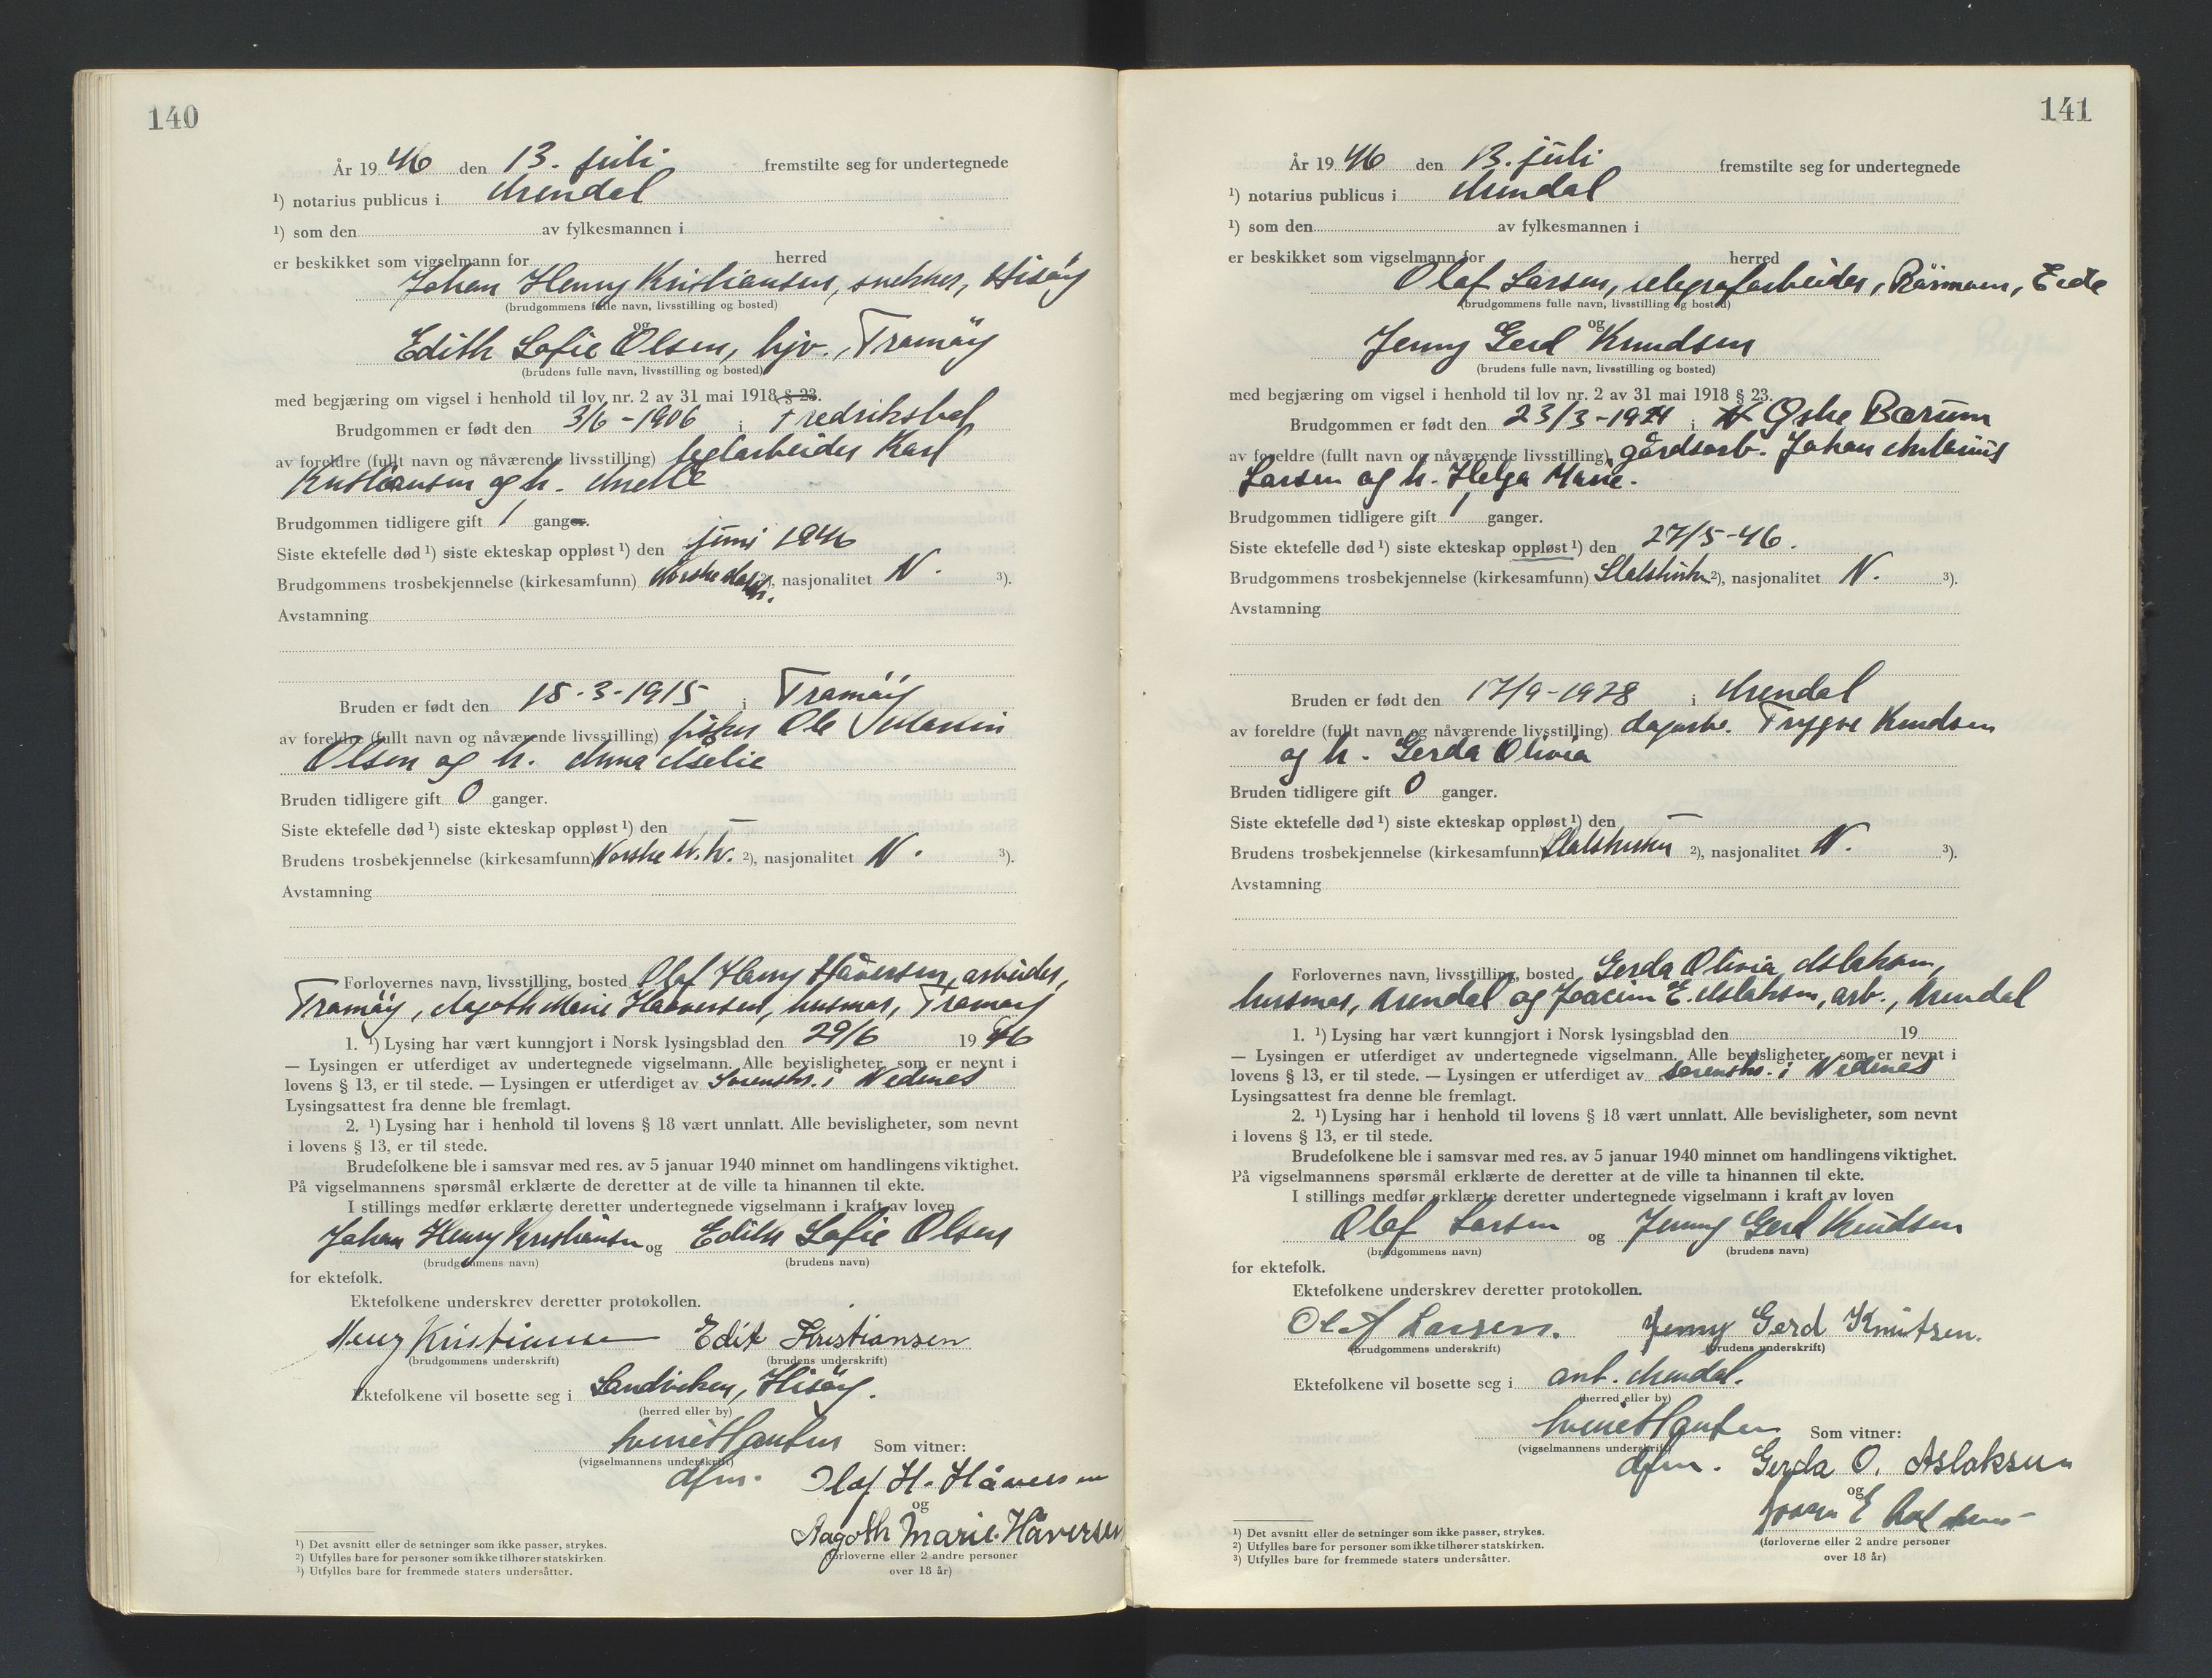 140
År 1946 den 13. juli fremstilte seg for undertegnede
¹) notarius publicus i Arendal
¹) som den av fylkesmannen i
er beskikket som vigselmann for herred
Johan Henry Kristiansen, snekker, Hisøy
(brudgommens fulle navn, livsstilling og bosted)
og
Edith Sofie Olsen, hjv., Tromøy
(brudens fulle navn, livsstilling og bosted)
med begjæring om vigsel i henhold til lov nr. 2 av 31 mai 1918 § 23.
Brudgommen er født den 3/6 - 1906 i Fredrikshal
av foreldre (fullt navn og nåværende livsstilling) Karl
Kristiansen og h. Anette
Brudgommen tidligere gift 1 ganger.
Siste ektefelle død ¹) siste ekteskap oppløst ¹) den juni 1946
Brudgommens trosbekjennelse (kirkesamfunn) Norske ²), nasjonalitet N. ³).
Avstamning
Bruden er født den 15-3-1915 i Tromøy
av foreldre (fullt navn og nåværende livsstilling) fisker Ole
Olsen og h. Anna Aselie
Bruden tidligere gift 0 ganger.
Siste ektefelle død ¹) siste ekteskap oppløst ¹) den —
Brudens trosbekjennelse (kirkesamfunn) Norske st. k. ²), nasjonalitet N. ³).
Avstamning
Forlovernes navn, livsstilling, bosted Olaf Harry Håversen, arbeider,
Tromøy, Aagoth Marie Haaversen, husmor, Tromøy
1. ¹) Lysing har vært kunngjort i Norsk lysingsblad den 29/6 1946
— Lysingen er utferdiget av undertegnede vigselmann. Alle bevisligheter, som er nevnt i
lovens § 13, er til stede. — Lysingen er utferdiget av Sorenskr. i Nedenes
Lysingsattest fra denne ble fremlagt.
2. ¹) Lysing har i henhold til lovens § 18 vært unnlatt. Alle bevisligheter, som nevnt
i lovens § 13, er til stede.
Brudefolkene ble i samsvar med res. av 5 januar 1940 minnet om handlingens viktighet.
På vigselmannens spørsmål erklærte de deretter at de ville ta hinannen til ekte.
I stillings medfør erklærte deretter undertegnede vigselmann i kraft av loven
Johan Henry Kristiansen og Edith Sofie Olsen
(brudgommens navn) (brudens navn)
for ektefolk.
Ektefolkene underskrev deretter protokollen.
Henry Kristiansen Edit Kristiansen
(brudgommens underskrift) (brudens underskrift)
Ektefolkene vil bosette seg i Sandviken, Hisøy.
(herred eller by)
Som vitner:
(vigselmannens underskrift)
dfm. Olaf H. Håversen
og
Aagoth Marie Håversen
(forloverne eller 2 andre personer
over 18 år)
¹) Det avsnitt eller de setninger som ikke passer, strykes.
²) Utfylles bare for personer som ikke tilhører statskirken.
³) Utfylles bare for fremmede staters undersåtter.
141
År 1946 den 13. juli fremstilte seg for undertegnede
¹) notarius publicus i Arendal
¹) som den av fylkesmannen i
er beskikket som vigselmann for herred
Olaf Larsen, telegrafarbeider, Eide
(brudgommens fulle navn, livsstilling og bosted)
og
Jenny Gerd Knudsen
(brudens fulle navn, livsstilling og bosted)
med begjæring om vigsel i henhold til lov nr. 2 av 31 mai 1918 § 23.
Brudgommen er født den 23/3-1924 i Bærum
av foreldre (fullt navn og nåværende livsstilling) gårdsarb. Johan Antonius
Larsen og h. Helga Marie.
Brudgommen tidligere gift 1 ganger.
Siste ektefelle død ¹) siste ekteskap oppløst ¹) den 27/5-46.
Brudgommens trosbekjennelse (kirkesamfunn) Statskirken ²), nasjonalitet N. ³).
Avstamning
Bruden er født den 17/9-1928 i Arendal
av foreldre (fullt navn og nåværende livsstilling) Trygve Knudsen
og h. Gerda Olivia
Bruden tidligere gift 0 ganger.
Siste ektefelle død ¹) siste ekteskap oppløst ¹) den —
Brudens trosbekjennelse (kirkesamfunn) Statskirken ²), nasjonalitet N. ³).
Avstamning
Forlovernes navn, livsstilling, bosted Gerda Olivia Aslaksen,
husmor, Arendal og Joacim E. Aslaksen, arb., Arendal
1. ¹) Lysing har vært kunngjort i Norsk lysingsblad den 19
— Lysingen er utferdiget av undertegnede vigselmann. Alle bevisligheter, som er nevnt i
lovens § 13, er til stede. — Lysingen er utferdiget av sorenskr. i Nedenes
Lysingsattest fra denne ble fremlagt.
2. ¹) Lysing har i henhold til lovens § 18 vært unnlatt. Alle bevisligheter, som nevnt
i lovens § 13, er til stede.
Brudefolkene ble i samsvar med res. av 5 januar 1940 minnet om handlingens viktighet.
På vigselmannens spørsmål erklærte de deretter at de ville ta hinannen til ekte.
I stillings medfør erklærte deretter undertegnede vigselmann i kraft av loven
Olaf Larsen og Jenny Gerd Knudsen
(brudgommens navn) (brudens navn)
for ektefolk.
Ektefolkene underskrev deretter protokollen.
Olaf Larsen. Jenny Gerd Knutsen.
(brudgommens underskrift) (brudens underskrift)
Ektefolkene vil bosette seg i ant. Arendal.
(herred eller by)
Som vitner:
(vigselmannens underskrift)
dfm. Gerda O. Aslaksen
og
(forloverne eller 2 andre personer
over 18 år)
¹) Det avsnitt eller de setninger som ikke passer, strykes.
²) Utfylles bare for personer som ikke tilhører statskirken.
³) Utfylles bare for fremmede staters undersåtter.